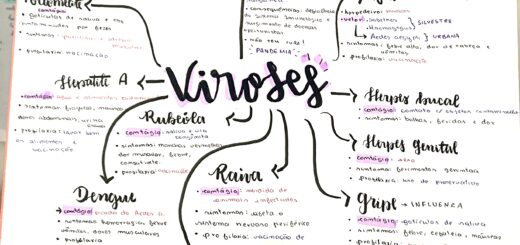 contágio:
gotículas de saliva e ou
contaminados por fezes
sintomas:
profilaxia: vacinação
Hepatite A
contágio: água e alimentos
sintomas:
dores abdominais, urina
profilaxia: lavar bem
os alimentos e
vacinação
Dengue
contágio: picada do Aedes
sintomas: hemorragia, febre
vômitos, dores musculares
profilaxia
consequências: deficiência
do sistema imunológico e
surgimento de doenças
oportunistas
não tem cura!
PANDEMIA
Viroses
Rubéola
contágio: saliva e via
congênita
sintomas: manchas vermelhas
dor muscular, febre,
profilaxia: vacinação
Raiva
contágio: mordida de
animais infectados
sintomas: afeta o
sistema nervoso periférico
profilaxia: vacinação de
vetor:
Haemagogus
SILVESTRE
Aedes aegypti
URBANA
sintomas: febre alta, dor de cabeça e
vômitos
profilaxia: vacinação
Herpes bucal
contágio: contato c/ objetos contaminados
sintomas: bolhas, feridas e dor
Herpes genital
contágio: sexo
sintomas: ferimentos genitais
profilaxia: uso de preservativo
Gripe → INFLUENZA
contágio: gotículas de saliva
sintomas: febre, cefaleia,
profilaxia: